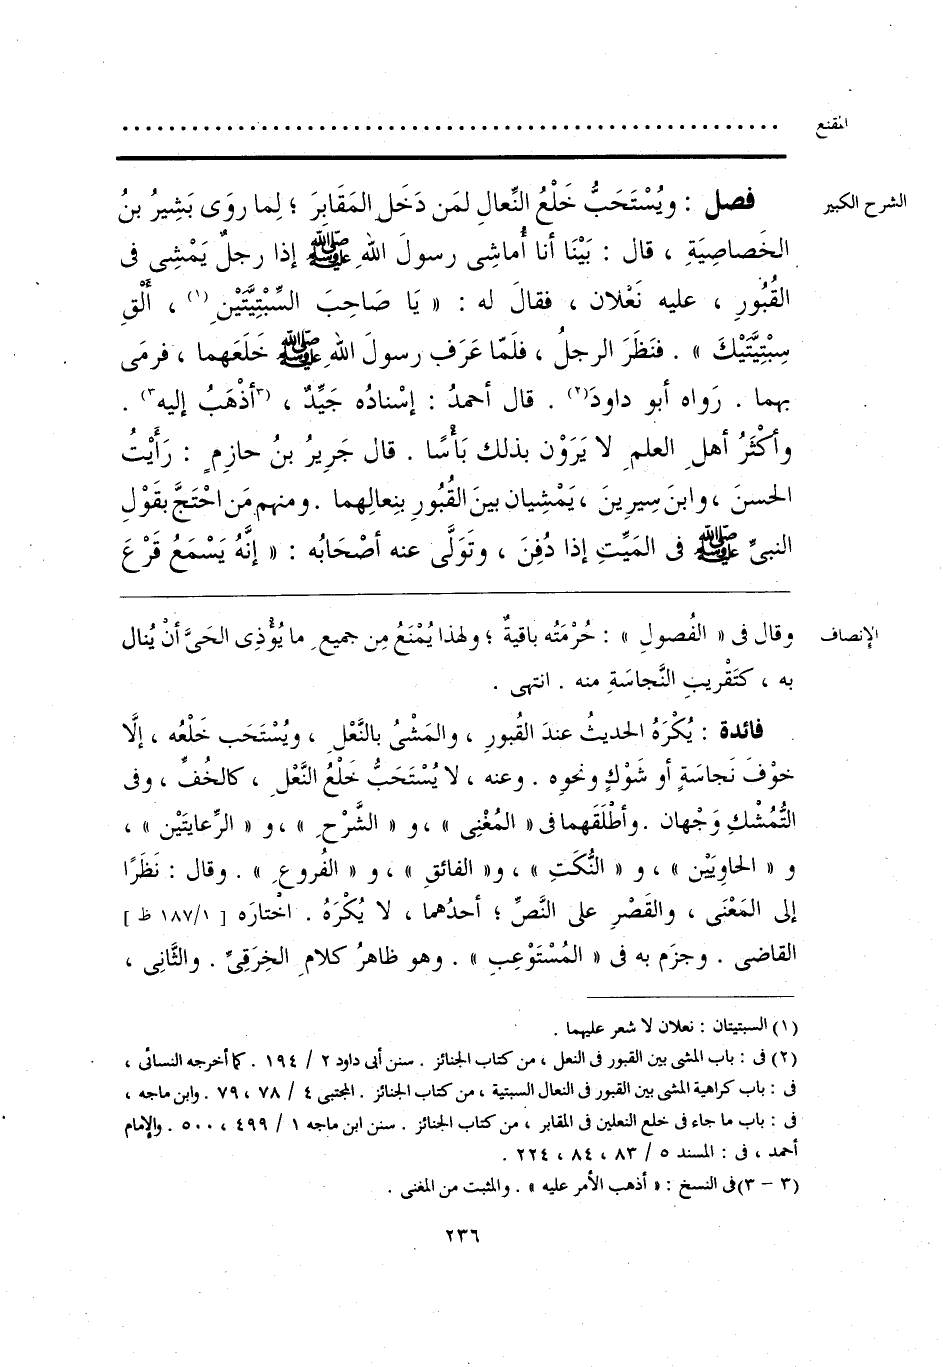 المقنع ........................................................
الشرح الكبير فصل : ويُسْتَحَبُّ خَلْعُ النِّعالِ لمَن دَخَل المَقَابِرَ ؛ لِما روَى بَشِيرُ بنُ
الخَصاصِيَةِ ، قال : بَيْنَا أنا أُماشِى رسولَ اللهِ ﷺ إذا رجلٌ يَمْشِى فى
القُبُورِ ، عليه نَعْلان ، فقالَ له : « يَا صَاحِبَ السِّبْتِيَّتَيْنِ(١) ، أَلْقِ
سِبْتِيَّتَيْكَ » . فنَظَرَ الرجلُ ، فلَمّا عَرَف رسولَ اللهِ ﷺ خَلَعَهما ، فرمَى
بهما . رَواه أبو داودَ(٢) . قال أحمدُ : إسْنادُه جَيِّدٌ ، (٣أذْهَبُ إليه٣) .
وأكْثَرُ أهلِ العلمِ لا يَرَوْن بذلك بَأْسًا . قال جَرِيرُ بنُ حازِمٍ : رَأَيْتُ
الحسنَ ، وابنَ سِيرِينَ ، يَمْشِيان بينَ القُبُورِ بنِعالِهما . ومنهم مَن احْتَجَّ بقَوْلِ
النبىِّ ﷺ فى المَيِّتِ إذا دُفِنَ ، وتَوَلَّى عنه أصْحَابُه : « إنَّهُ يَسْمَعُ قَرْعَ
الإنصاف وقال فى « الفُصولِ » : حُرْمَتُه باقيةٌ ؛ ولهذا يُمْنَعُ مِن جميعِ ما يُؤْذِى الحَىَّ أنْ يُنال
به ، كتَقْريبِ النَّجاسَةِ منه . انتهى .
فائدة : يُكْرَهُ الحديثُ عندَ القبورِ ، والمَشْىُ بالنَّعْلِ ، ويُسْتَحَب خَلْعُه ، إلَّا
خوْفَ نَجاسَةٍ أو شَوْكٍ ونحوِه . وعنه ، لا يُسْتَحَبُّ خَلْعُ النَّعْلِ ، كالخُفِّ ، وفى
التُّمُشْكِ وَجْهان . وأطْلَقَهما فى « المُغْنِى » ، و « الشَّرْحِ » ، و « الرِّعايتَيْن » ،
و « الحاوِيَيْن » ، و « النُّكَتِ » ، و« الفائقِ » ، و « الفُروعِ » . وقال : نَظَرًا
إلى المَعْنَى ، والقَصْرِ على النَّصِّ ؛ أحدُهما ، لا يُكْرَهُ . اخْتارَه [ ١٨٧/١ ظ ]
القاضى . وجزَم به فى « المُسْتَوْعِبِ » . وهو ظاهرُ كلامِ الخِرَقِىِّ . والثَّانِى ،
(١) السبتيتان : نعلان لا شعر عليهما .
(٢) فى : باب المشى بين القبور فى النعل ، من كتاب الجنائز . سنن أبى داود ٢ / ١٩٤ . كما أخرجه النسائى ،
فى : باب كراهية المشى بين القبور فى النعال السبتية ، من كتاب الجنائز . المجتبى ٤ / ٧٨ ، ٧٩ . وابن ماجه ،
فى : باب ما جاء فى خلع النعلين فى المقابر ، من كتاب الجنائز . سنن ابن ماجه ١ / ٤٩٩ ، ٥٠٠ . والإمام
أحمد ، فى : المسند ٥ / ٨٣ ، ٨٤ ، ٢٢٤ .
(٣ - ٣) فى النسخ : « أذهب الأمر عليه » . والمثبت من المغنى .
٢٣٦